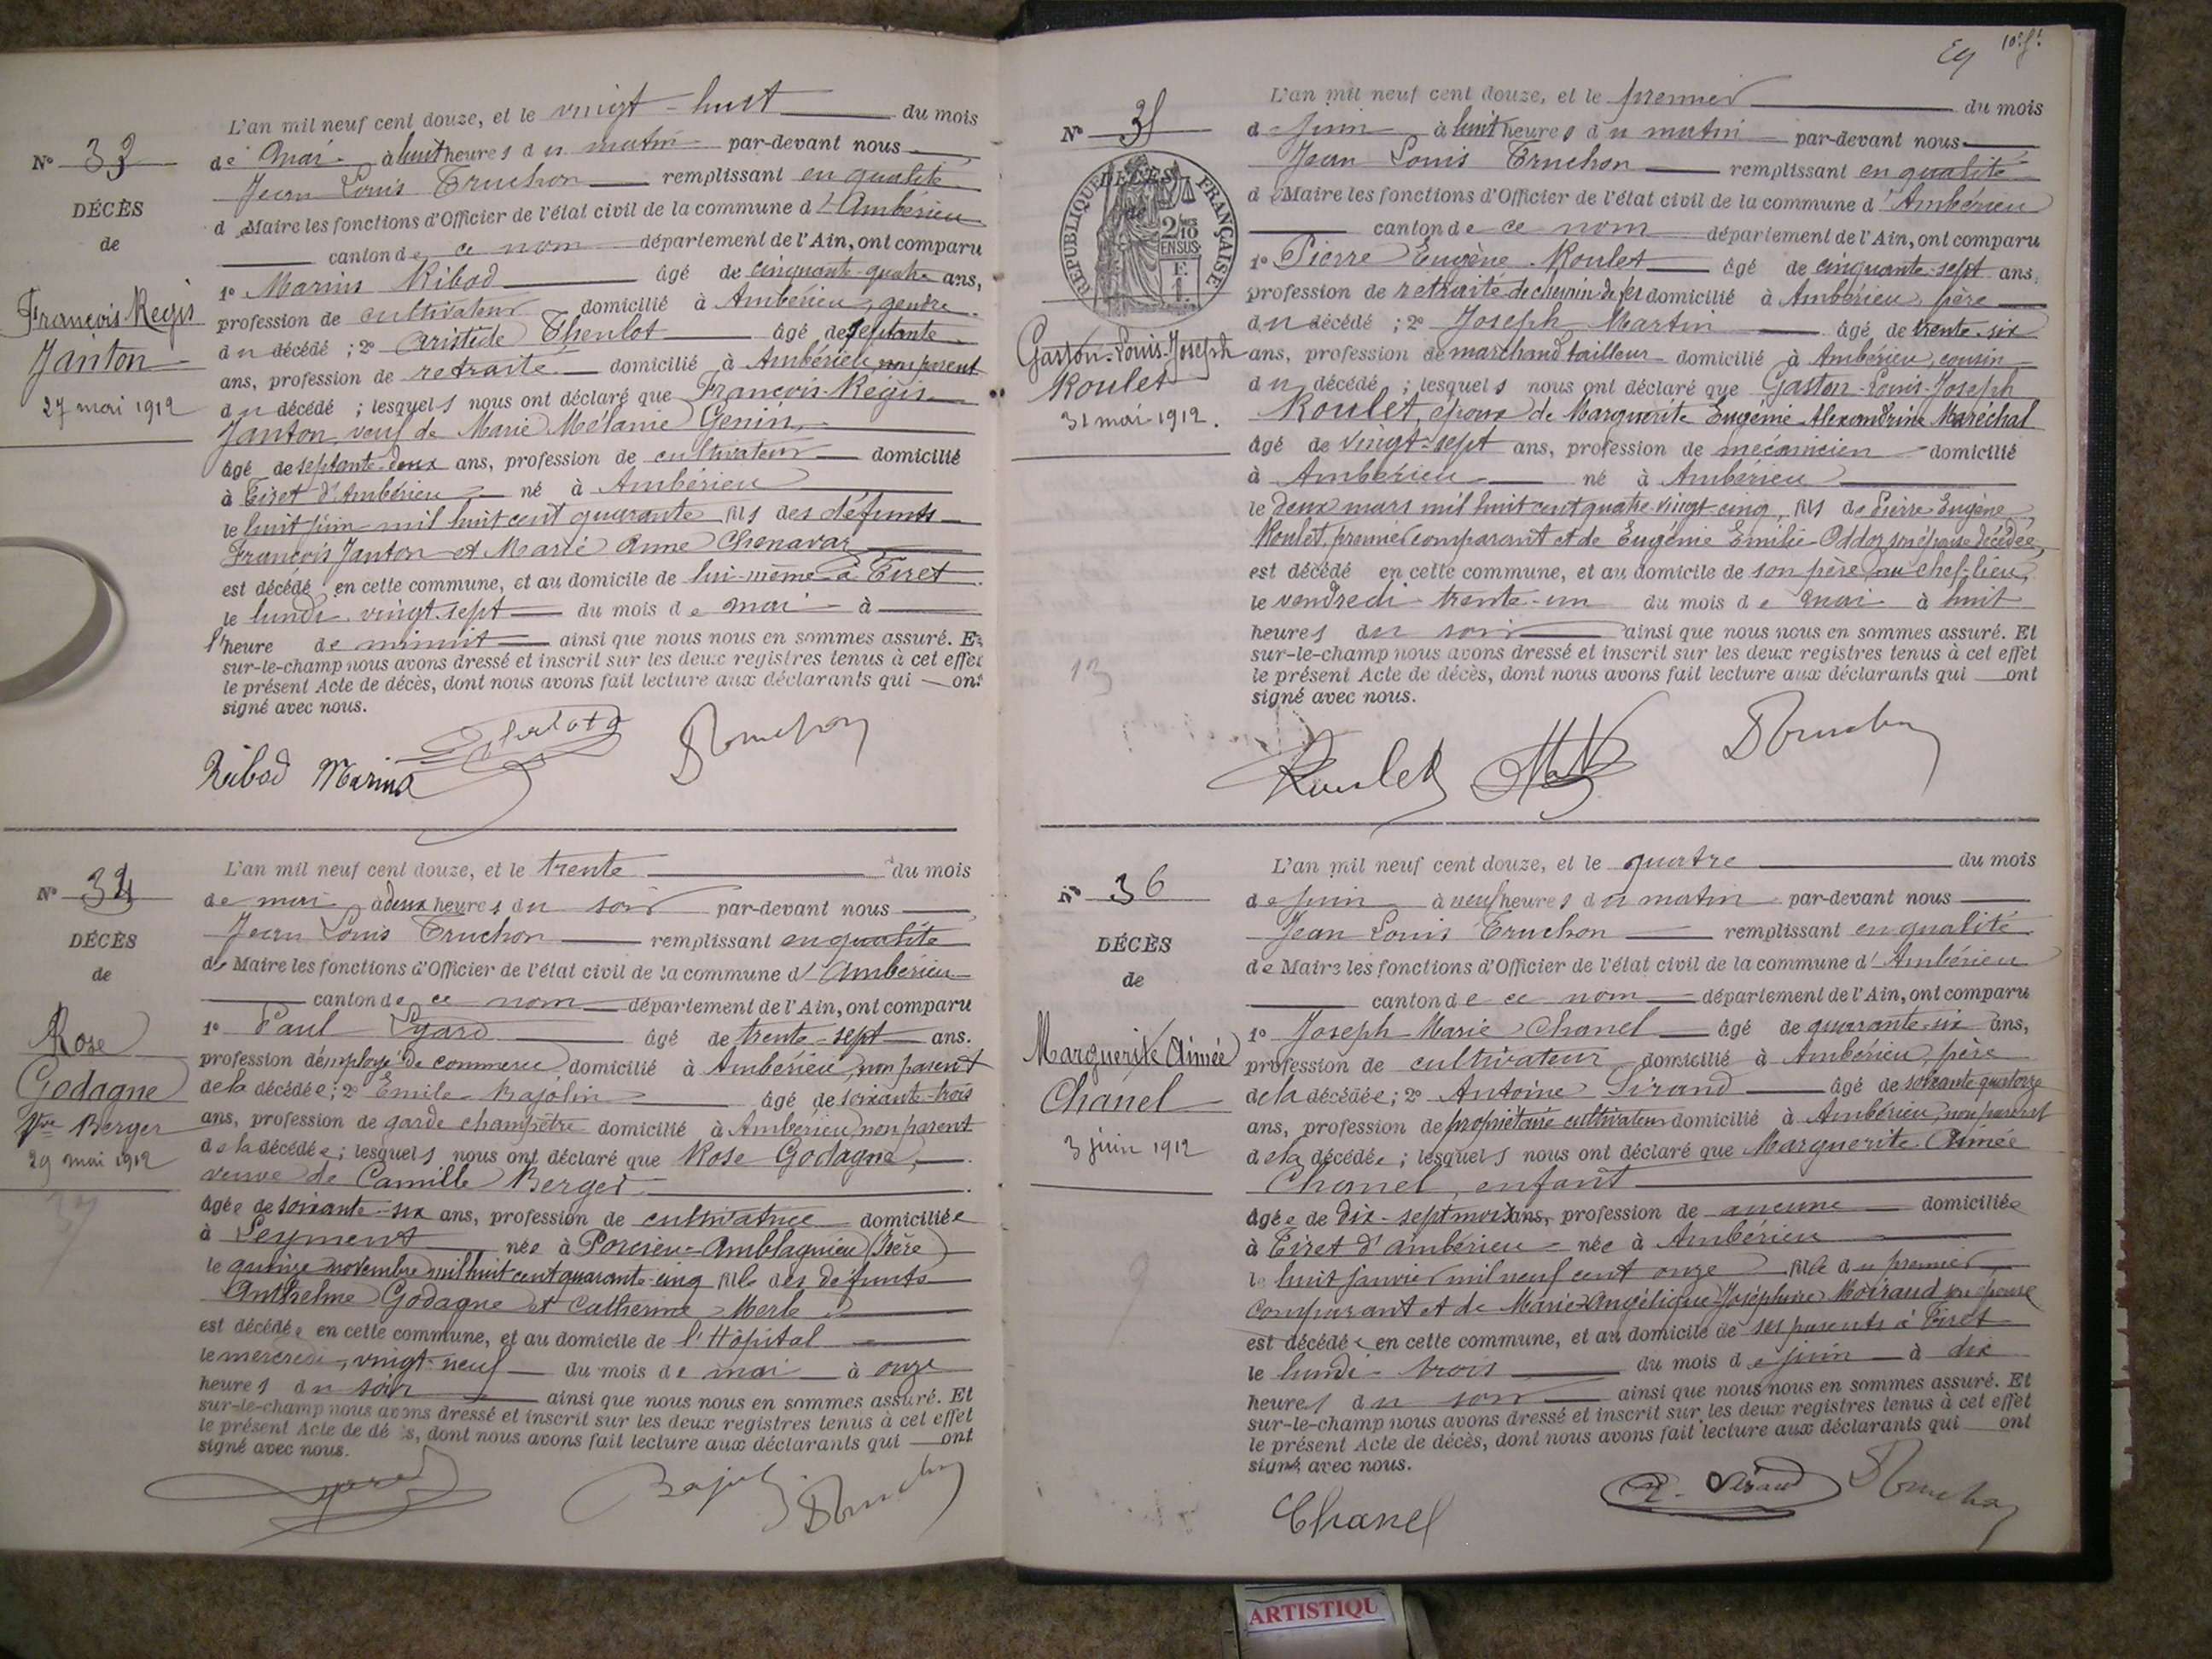 L'an mil neuf cent douze, et le vingt-huit du mois
N° 33
de mai à huit heures du matin par-devant nous
Jean Louis Truchon remplissant en qualité
DÉCÈS
de Maire les fonctions d'Officier de l'état civil de la commune d'Ambérieu
de
canton de ce nom département de l'Ain, ont comparu
1° Marius Ribod âgé de cinquante-quatre ans,
François Régis
profession de cultivateur domicilié à Ambérieu, gendre
Janton
du décédé ; 2° Aristide âgé de septante
ans, profession de retraité domicilié à Ambérieu, non parent
27 mai 1912
du décédé ; lesquels nous ont déclaré que François-Régis
Janton, veuf de Marie Mélanie Genin,
âgé de septante-deux ans, profession de cultivateur domicilié
à Tiret d'Ambérieu né à Ambérieu
le huit juin mil huit cent quarante fils des défunts
François Janton et Marie Anne Chenavar
est décédé en cette commune, et au domicile de lui-même à Tiret
le lundi vingt-sept du mois de mai à
l'heure de minuit ainsi que nous nous en sommes assuré. Et
sur-le-champ nous avons dressé et inscrit sur les deux registres tenus à cet effet
le présent Acte de décès, dont nous avons fait lecture aux déclarants qui ont
signé avec nous.
Ribod Marius Truchon
L'an mil neuf cent douze, et le trente du mois
N° 34
de mai à deux heures du soir par-devant nous
Jean Louis Truchon remplissant en qualité
DÉCÈS
de Maire les fonctions d'Officier de l'état civil de la commune d'Ambérieu
de
canton de ce nom département de l'Ain, ont comparu
1° Paul âgé de trente-sept ans.
Rose
profession d'employé de commerce domicilié à Ambérieu, non parent
Godagne
de la décédée ; 2° Emile Bajolin âgé de soixante-trois
Vve Berger
ans, profession de garde champêtre domicilié à Ambérieu, non parent
29 mai 1912
de la décédée ; lesquels nous ont déclaré que Rose Godagne,
veuve de Camille Berger
âgée de soixante-six ans, profession de cultivatrice domiciliée
à Leyment née à Porcieu-Amblagnieu (Isère)
le quinze novembre mil huit cent quarante-cinq fille des défunts
Anthelme Godagne et Catherine Merle
est décédée en cette commune, et au domicile de l'Hôpital
le mercredi, vingt-neuf du mois de mai à onze
heures du soir ainsi que nous nous en sommes assuré. Et
sur-le-champ nous avons dressé et inscrit sur les deux registres tenus à cet effet
le présent Acte de décès, dont nous avons fait lecture aux déclarants qui ont
signé avec nous.
Truchon
L'an mil neuf cent douze, et le premier du mois
N° 35
de juin à huit heures du matin par-devant nous
Jean Louis Truchon remplissant en qualité
RÉPUBLIQUE FRANÇAISE
DÉCÈS
de
2/10 EN SUS
de Maire les fonctions d'Officier de l'état civil de la commune d'Ambérieu
canton de ce nom département de l'Ain, ont comparu
1° Pierre Eugène Roulet âgé de cinquante-sept ans,
profession de retraité de chemin de fer domicilié à Ambérieu, père
du décédé ; 2° Joseph Martin âgé de trente-six
Gaston-Louis-Joseph
ans, profession de marchand tailleur domicilié à Ambérieu, cousin
Roulet
du décédé ; lesquels nous ont déclaré que Gaston-Louis-Joseph
31 mai 1912.
Roulet, époux de Marguerite Eugénie Alexandrine Maréchal
âgé de vingt-sept ans, profession de mécanicien domicilié
à Ambérieu né à Ambérieu
le deux mars mil huit cent quatre-vingt-cinq, fils de Pierre Eugène
Roulet, premier comparant et de Eugénie Emilie Oddoz son épouse décédée,
est décédé en cette commune, et au domicile de son père au chef-lieu,
le vendredi trente-un du mois de mai à huit
heures du soir ainsi que nous nous en sommes assuré. Et
sur-le-champ nous avons dressé et inscrit sur les deux registres tenus à cet effet
le présent Acte de décès, dont nous avons fait lecture aux déclarants qui ont
signé avec nous.
Roulet Truchon
L'an mil neuf cent douze, et le quatre du mois
N° 36
de juin à neuf heures du matin par-devant nous
Jean Louis Truchon remplissant en qualité
DÉCÈS
de Maire les fonctions d'Officier de l'état civil de la commune d'Ambérieu
de
canton de ce nom département de l'Ain, ont comparu
1° Joseph Marie Chanel âgé de quarante-six ans,
Marguerite Aimée
profession de cultivateur domicilié à Ambérieu, père
Chanel
de la décédée ; 2° Antoine Sirand âgé de soixante quatorze
ans, profession de propriétaire cultivateur domicilié à Ambérieu, non parent
3 juin 1912
de la décédée ; lesquels nous ont déclaré que Marguerite Aimée
Chanel, enfant
âgée de dix-sept mois ans, profession de aucune domiciliée
à Tiret d'Ambérieu née à Ambérieu
le huit janvier mil neuf cent onze fille du premier
comparant et de Marie-Angélique-Joséphine Moiraud son épouse
est décédée en cette commune, et au domicile de ses parents à Tiret
le lundi trois du mois de juin à dix
heures du soir ainsi que nous nous en sommes assuré. Et
sur-le-champ nous avons dressé et inscrit sur les deux registres tenus à cet effet
le présent Acte de décès, dont nous avons fait lecture aux déclarants qui ont
signé avec nous.
Chanel A. Sirand Truchon
ARTISTIQU